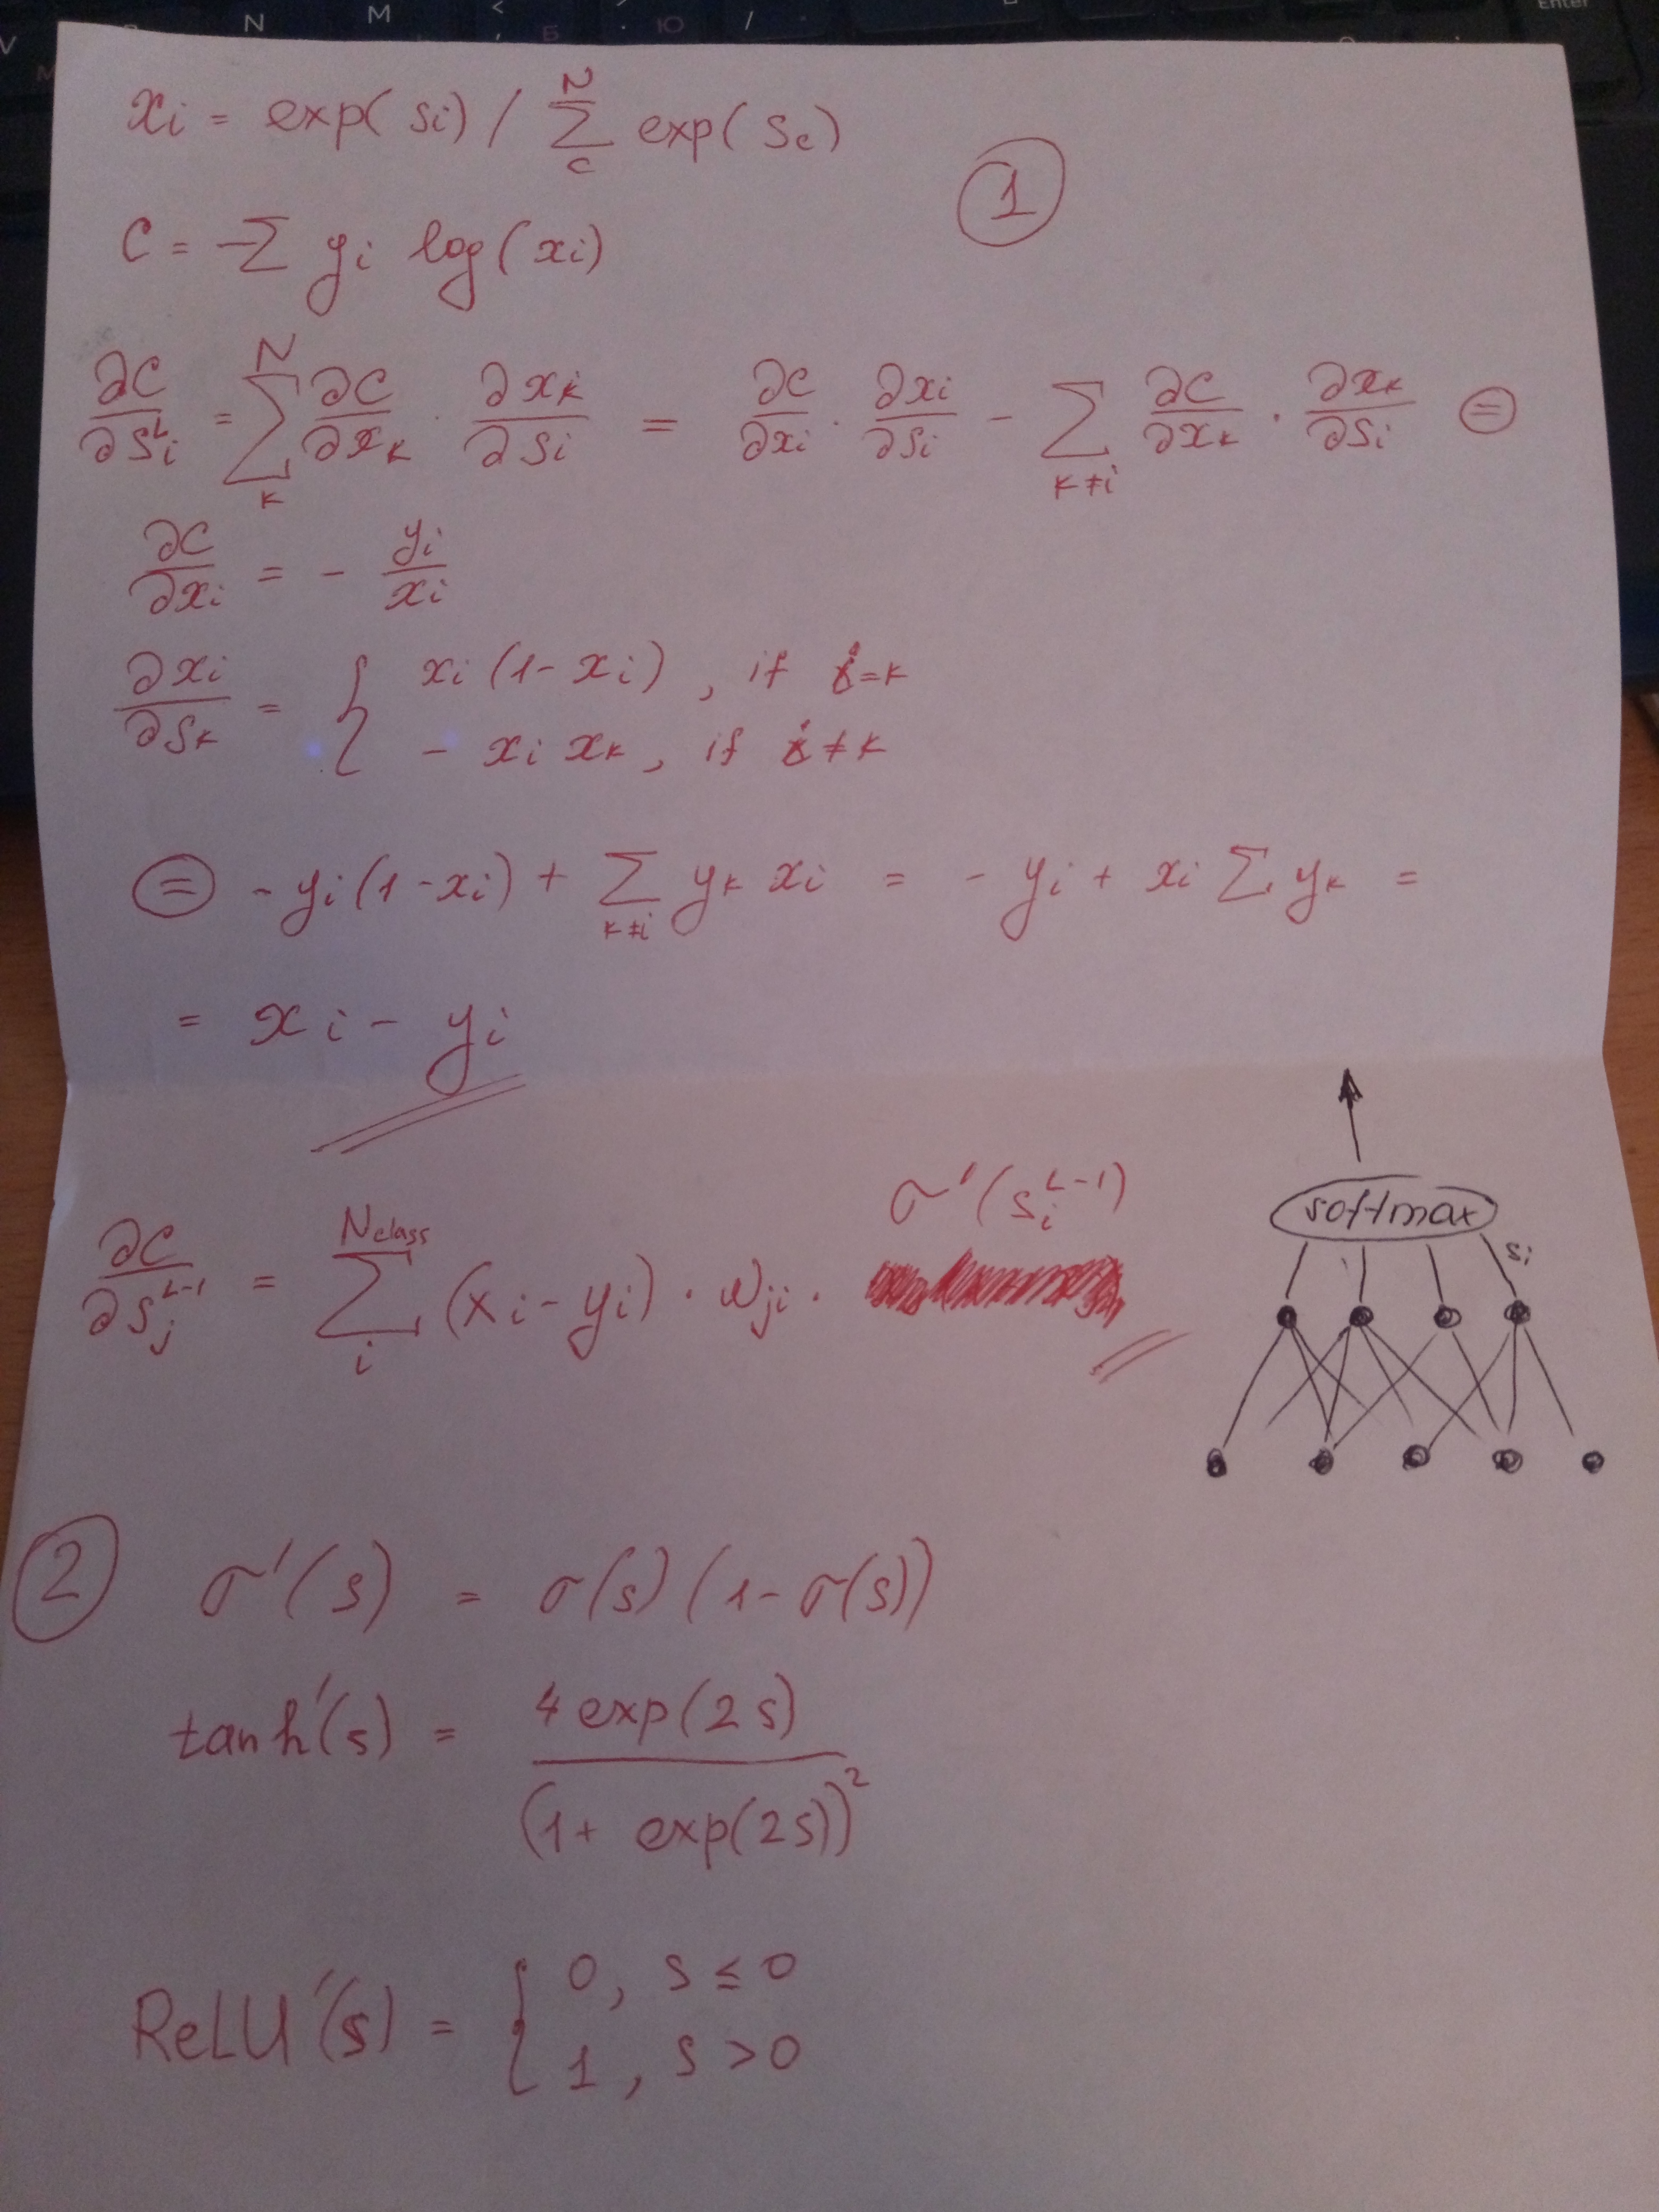 V N M < , Б . Ю / Enter
M
xi = exp(si) / Σ_c^N exp(sc)
①
C = -Σ yi log(xi)
∂C/∂s_i^L = Σ_k^N ∂C/∂xk · ∂xk/∂si = ∂C/∂xi · ∂xi/∂si - Σ_{k≠i} ∂C/∂xk · ∂xk/∂si ⊜
∂C/∂xi = - yi/xi
∂xi/∂sk = { xi(1-xi), if i=k
- xi xk, if i≠k
⊜ -yi(1-xi) + Σ_{k≠i} yk xi = - yi + xi Σ yk =
= xi - yi
∂C/∂s_j^{L-1} = Σ_i^{Nclass} (xi-yi) · wji · σ'(s_i^{L-1})
softmax
si
② σ'(s) = σ(s)(1-σ(s))
tanh'(s) = 4exp(2s) / (1+ exp(2s))²
ReLU'(s) = { 0, s ≤ 0
1, s > 0